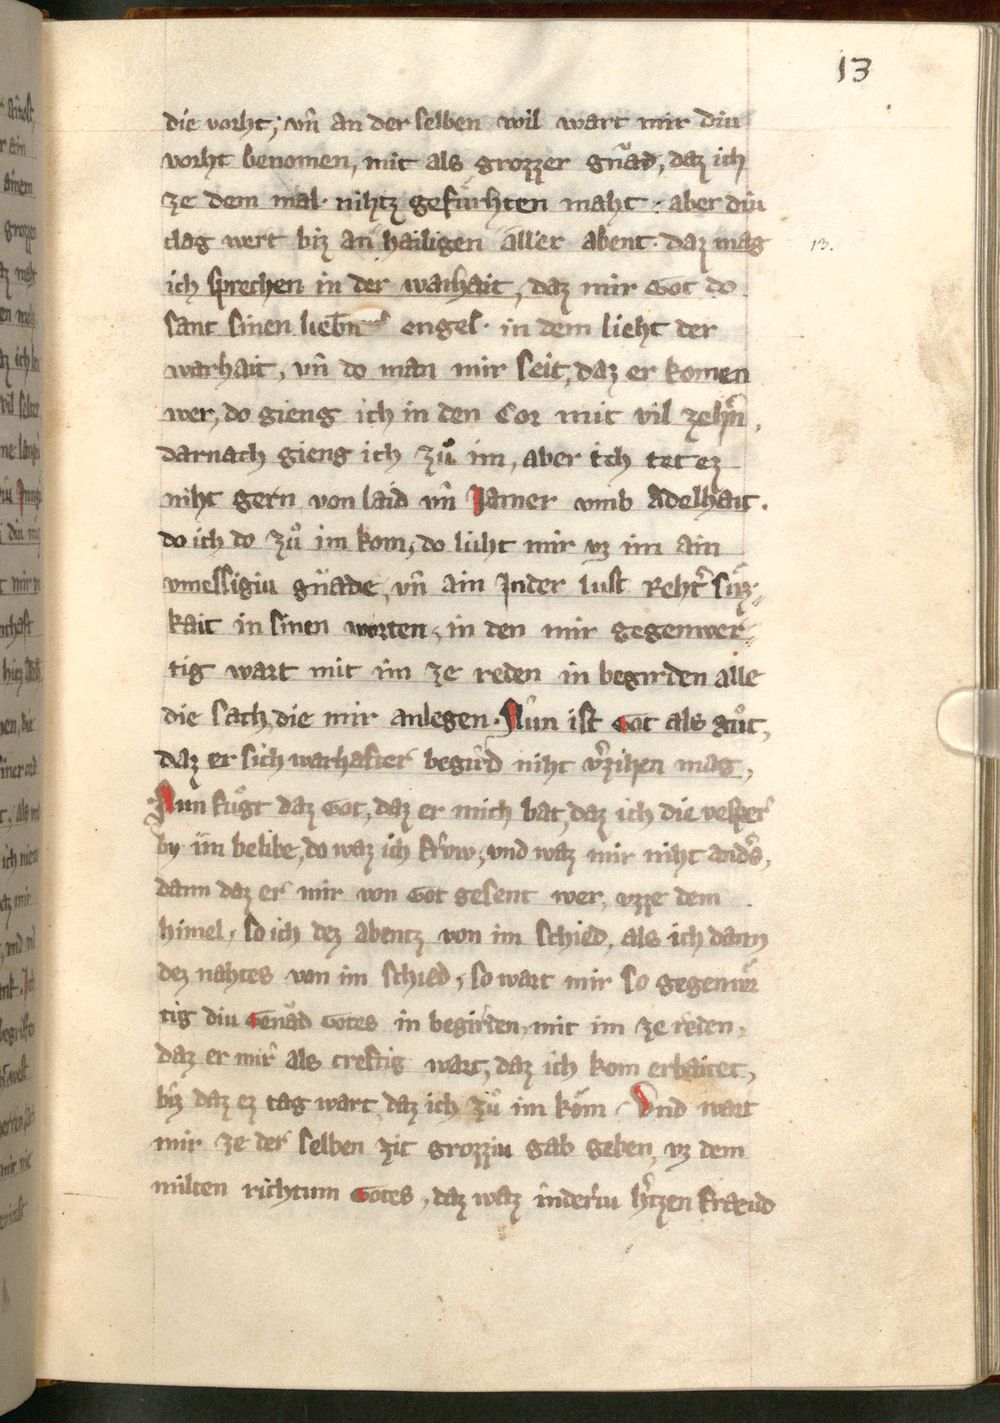 13
die vorht; vn̄ an der selben wil wart mir diu
vorht benomen, mit als grozzer gnad, daz ich
ze dem mal nihtz gefürhten maht. aber diu
clag wert biz an hailigen aller abent. daz mag 13.
ich sprechen in der warhait, daz mir Got do
sant sinen liebn̄ engel. in dem lieht der
warhait, vn̄ do man mir seit, daz er komen
wer, do gieng ich in den Cor mit vil zehn̄,
darnach gieng ich zů im, aber ich tet ez
niht gern von laid vn̄ Jamer vmb Adelhait.
do ich do zů im kom, do lüht mir vz im ain
vmessigiu gnade, vn̄ ain Jnder lust Reht̄ süz-
kait in sinen worten, in den mir gegenwer-
tig wart mit im ze reden in begirden alle
die sach, die mir anlegen. Nun ist Got als gůt,
daz er sich warhafter begird niht v̄zihen mag,
Nun fůgt daz Got, daz er mich bat, daz ich die vesper
by im belibe, do waz ich fro̊w, vnd waz mir niht and̄s,
dann daz er mir von Got gesent wer, vzze dem
himel, so ich dez abentz von im schied, als ich dann
dez nahtes von im schied, so wart mir so gegenwer
tig diu Genad Gotes in begirden, mit im ze reden,
daz er mir als creftig wart, daz ich kom erbaitet,
biz daz ez tag wart, daz ich zů im kom. Vnd wart
mir ze der selben zit grozziu gab geben, vz dem
milten richtum Gotes, daz waz inderiu h̄tzen fraeud